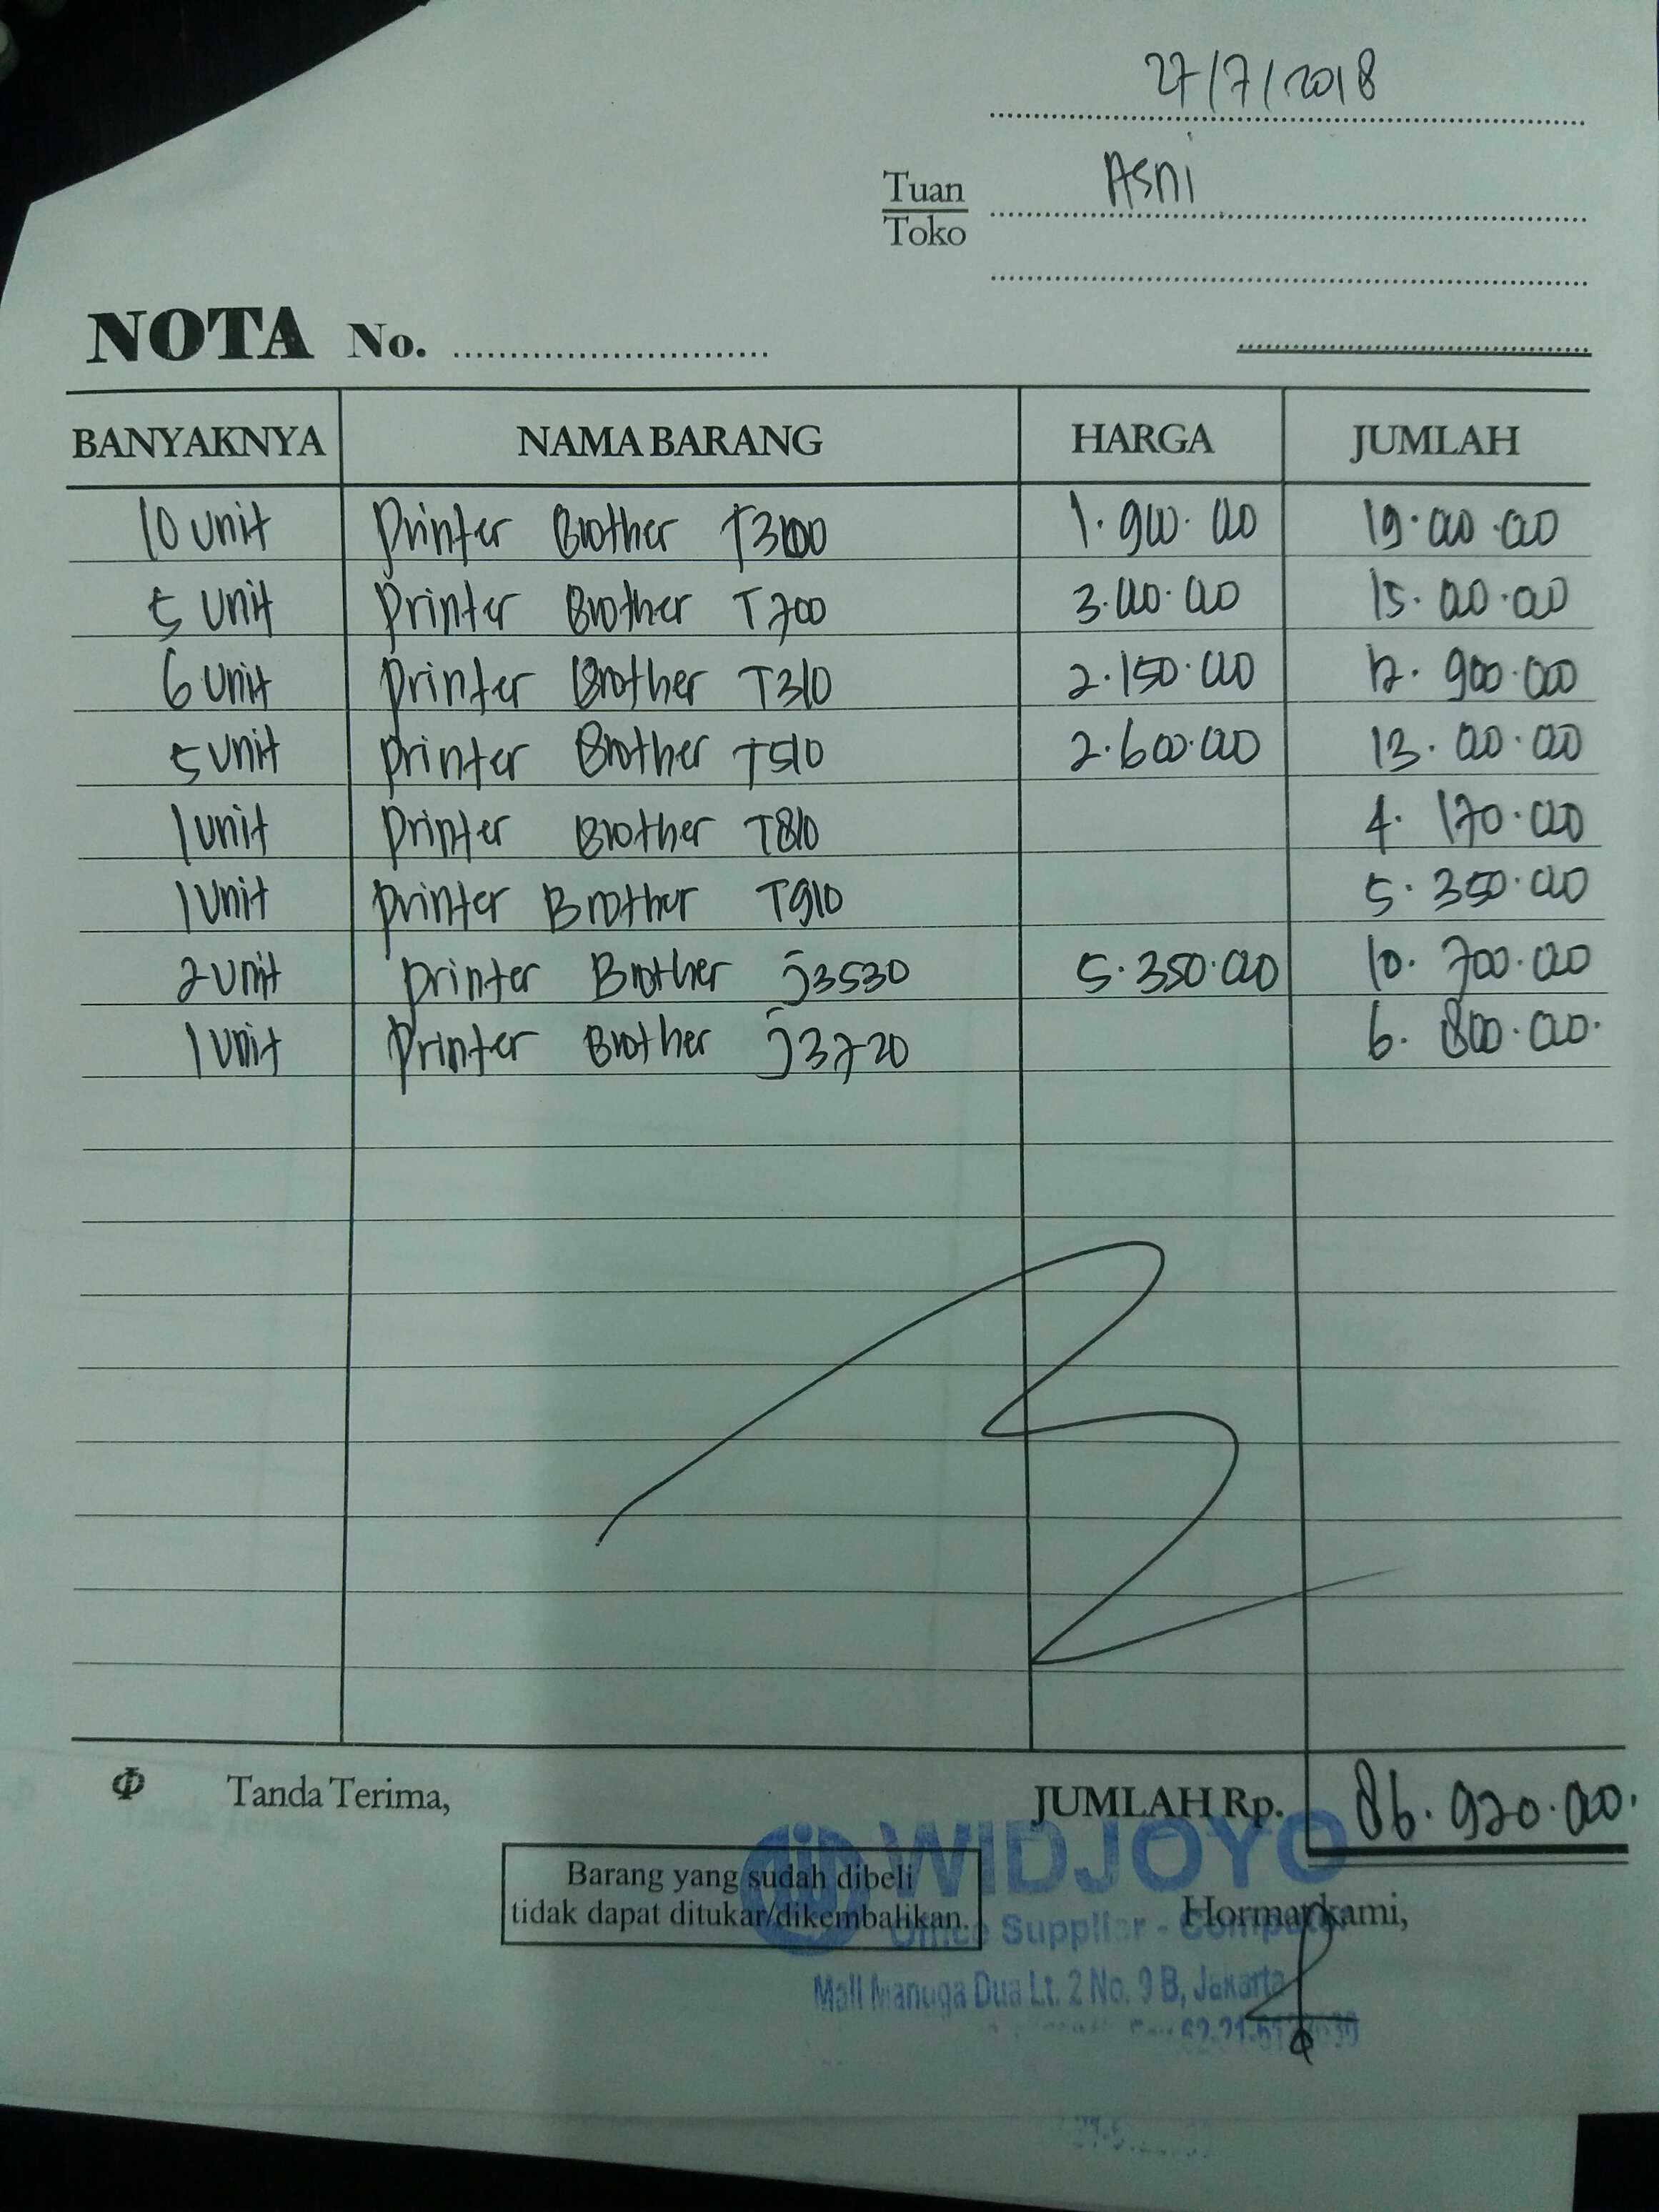 27/7/2018
Tuan
Toko
Asni
NOTA No.
BANYAKNYA NAMA BARANG HARGA JUMLAH
10 unit Printer Brother 1.900.000 19.000.000
5 unit Printer Brother T700 3.000.000 15.000.000
6 unit Printer Brother T310 2.150.000 12.900.000
5 unit Printer Brother T510 2.600.000 13.000.000
1 unit Printer Brother T810 4.170.000
1 unit Printer Brother T910 5.350.000
2 unit Printer Brother J3530 5.350.000 10.700.000
1 unit Printer Brother J3720 6.800.000.
Tanda Terima, JUMLAH Rp. 86.920.000.
WIDJOYO
Barang yang sudah dibeli
tidak dapat ditukar/dikembalikan.
Hormat kami,
Office Supplier - Computer
Mall Mangga Dua Lt. 2 No. 9 B, Jakarta